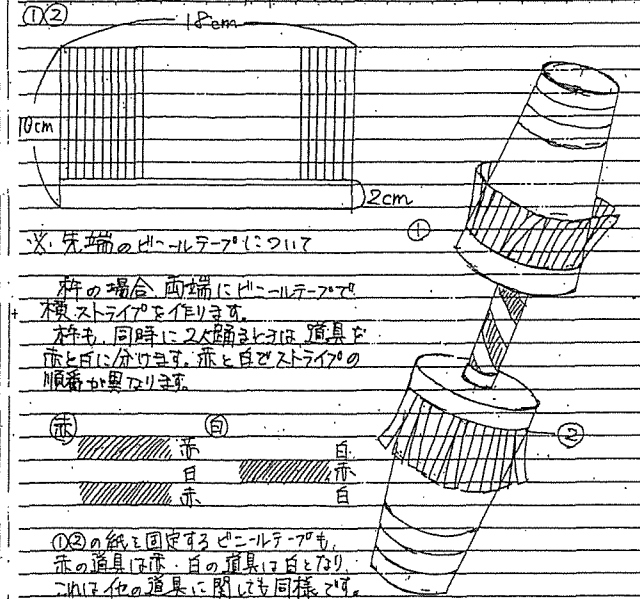 ①②
18cm
10cm
2cm
①
※ 先端のビニールテープについて
杵の場合、両端にビニールテープで
横ストライプを作ります。
杵も、同時に2人踊るときは、道具を
赤と白に分けます。赤と白でストライプの
順番が異なります。
②
赤 白
赤 白
白 赤
赤 白
①②の紙を固定するビニールテープも、
赤の道具は赤・白の道具は白となり、
これは他の道具に関しても同様です。